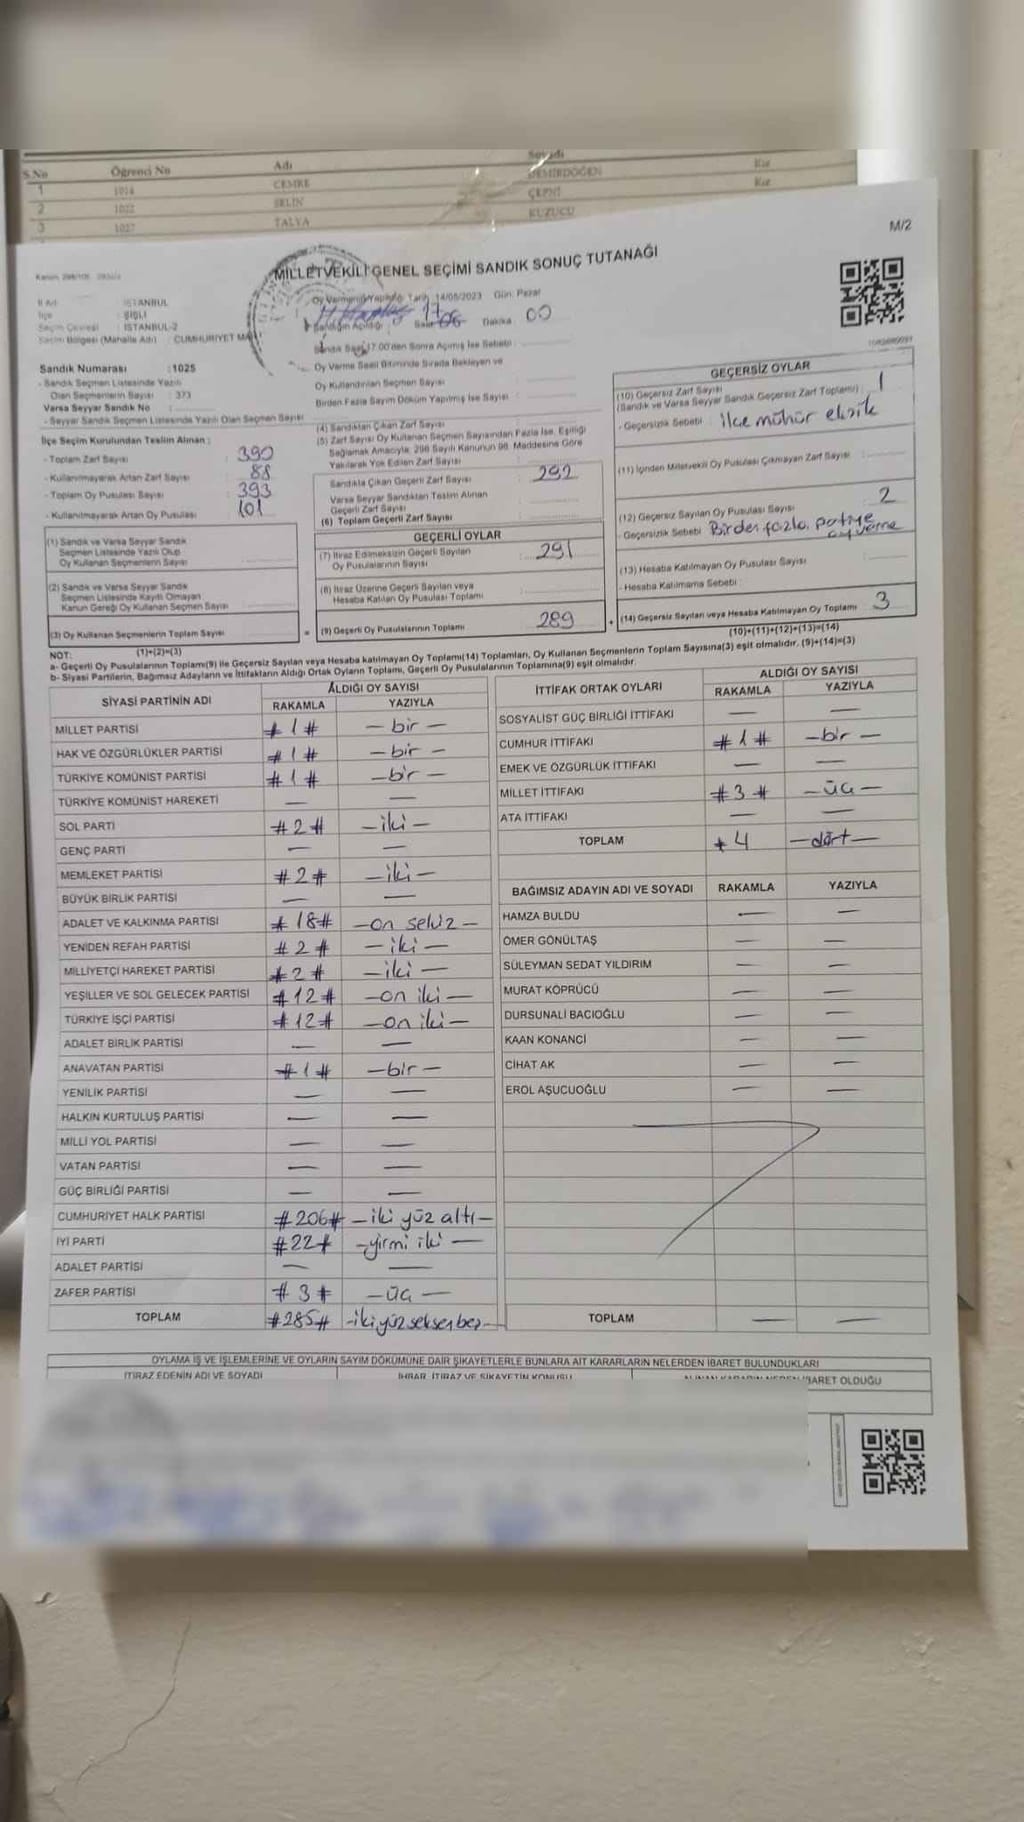 S.No Öğrenci No Adı Soyadı Kız
1 1014 CEMRE DEMİRDÖĞEN Kız
2 1022 SELİN ÇEPNİ
3 1027 TALYA KUZUCU
M/2
MİLLETVEKİLİ GENEL SEÇİMİ SANDIK SONUÇ TUTANAĞI
İl Adı : İSTANBUL
İlçe : ŞİŞLİ
Seçim Çevresi : İSTANBUL-2
Seçim Bölgesi (Mahalle Adı) : CUMHURİYET MAH
Oy Vermenin Yapıldığı Tarih : 14/05/2023 Gün: Pazar
Sandığın Açıldığı Saat 17 Dakika 00
Sandık Saat 17:00'den Sonra Açılmış İse Sebebi :
Oy Verme Saati Bitiminde Sırada Bekleyen ve
Oy Kullandırılan Seçmen Sayısı
Birden Fazla Sayım Döküm Yapılmış İse Sayısı
Sandık Numarası : 1025
- Sandık Seçmen Listesinde Yazılı
Olan Seçmenlerin Sayısı : 373
Varsa Seyyar Sandık No
- Seyyar Sandık Seçmen Listesinde Yazılı Olan Seçmen Sayısı
İlçe Seçim Kurulundan Teslim Alınan :
- Toplam Zarf Sayısı : 390
- Kullanılmayarak Artan Zarf Sayısı : 88
- Toplam Oy Pusulası Sayısı : 393
- Kullanılmayarak Artan Oy Pusulası : 101
(1) Sandık ve Varsa Seyyar Sandık
Seçmen Listesinde Yazılı Olup
Oy Kullanan Seçmenlerin Sayısı
(2) Sandık ve Varsa Seyyar Sandık
Seçmen Listesinde Kayıtlı Olmayan
Kanun Gereği Oy Kullanan Seçmen Sayısı
(3) Oy Kullanan Seçmenlerin Toplam Sayısı
(1)+(2)=(3)
(4) Sandıktan Çıkan Zarf Sayısı
(5) Zarf Sayısı Oy Kullanan Seçmen Sayısından Fazla İse, Eşitliği
Sağlamak Amacıyla, 298 Sayılı Kanunun 98. Maddesine Göre
Yakılarak Yok Edilen Zarf Sayısı
Sandıkta Çıkan Geçerli Zarf Sayısı : 292
Varsa Seyyar Sandıktan Teslim Alınan
Geçerli Zarf Sayısı
(6) Toplam Geçerli Zarf Sayısı
GEÇERLİ OYLAR
(7) İtiraz Edilmeksizin Geçerli Sayılan
Oy Pusulalarının Sayısı : 291
(8) İtiraz Üzerine Geçerli Sayılan veya
Hesaba Katılan Oy Pusulası Toplamı
= (9) Geçerli Oy Pusulalarının Toplamı : 289
GEÇERSİZ OYLAR
(10) Geçersiz Zarf Sayısı
(Sandık ve Varsa Seyyar Sandık Geçersiz Zarf Toplamı) : 1
- Geçersizlik Sebebi : ilçe mühür eksik
(11) İçinden Milletvekili Oy Pusulası Çıkmayan Zarf Sayısı
(12) Geçersiz Sayılan Oy Pusulası Sayısı 2
- Geçersizlik Sebebi Birden fazla partiye oy verme
(13) Hesaba Katılmayan Oy Pusulası Sayısı
- Hesaba Katılmama Sebebi :
+ (14) Geçersiz Sayılan veya Hesaba Katılmayan Oy Toplamı 3
(10)+(11)+(12)+(13)=(14)
NOT:
a- Geçerli Oy Pusulalarının Toplamı(9) ile Geçersiz Sayılan veya Hesaba katılmayan Oy Toplamı(14) Toplamları, Oy Kullanan Seçmenlerin Toplam Sayısına(3) eşit olmalıdır. (9)+(14)=(3)
b- Siyasi Partilerin, Bağımsız Adayların ve İttifakların Aldığı Ortak Oyların Toplamı, Geçerli Oy Pusulalarının Toplamına(9) eşit olmalıdır.
SİYASİ PARTİNİN ADI ALDIĞI OY SAYISI
RAKAMLA YAZIYLA
MİLLET PARTİSİ #1# -bir-
HAK VE ÖZGÜRLÜKLER PARTİSİ #1# -bir-
TÜRKİYE KOMÜNİST PARTİSİ #1# -bir-
TÜRKİYE KOMÜNİST HAREKETİ — —
SOL PARTİ #2# -iki-
GENÇ PARTİ — —
MEMLEKET PARTİSİ #2# -iki-
BÜYÜK BİRLİK PARTİSİ — —
ADALET VE KALKINMA PARTİSİ #18# -on sekiz-
YENİDEN REFAH PARTİSİ #2# -iki-
MİLLİYETÇİ HAREKET PARTİSİ #2# -iki-
YEŞİLLER VE SOL GELECEK PARTİSİ #12# -on iki-
TÜRKİYE İŞÇİ PARTİSİ #12# -on iki-
ADALET BİRLİK PARTİSİ — —
ANAVATAN PARTİSİ #1# -bir-
YENİLİK PARTİSİ — —
HALKIN KURTULUŞ PARTİSİ — —
MİLLİ YOL PARTİSİ — —
VATAN PARTİSİ — —
GÜÇ BİRLİĞİ PARTİSİ — —
CUMHURİYET HALK PARTİSİ #206# -iki yüz altı-
İYİ PARTİ #22# -yirmi iki-
ADALET PARTİSİ — —
ZAFER PARTİSİ #3# -üç-
TOPLAM #285# -iki yüz seksen beş-
İTTİFAK ORTAK OYLARI ALDIĞI OY SAYISI
RAKAMLA YAZIYLA
SOSYALİST GÜÇ BİRLİĞİ İTTİFAKI — —
CUMHUR İTTİFAKI #1# -bir-
EMEK VE ÖZGÜRLÜK İTTİFAKI — —
MİLLET İTTİFAKI #3# -üç-
ATA İTTİFAKI — —
TOPLAM #4 -dört-
BAĞIMSIZ ADAYIN ADI VE SOYADI RAKAMLA YAZIYLA
HAMZA BULDU — —
ÖMER GÖNÜLTAŞ — —
SÜLEYMAN SEDAT YILDIRIM — —
MURAT KÖPRÜCÜ — —
DURSUNALİ BACIOĞLU — —
KAAN KONANCİ — —
CİHAT AK — —
EROL AŞUCUOĞLU — —
TOPLAM — —
OYLAMA İŞ VE İŞLEMLERİNE VE OYLARIN SAYIM DÖKÜMÜNE DAİR ŞİKAYETLERLE BUNLARA AİT KARARLARIN NELERDEN İBARET BULUNDUKLARI
İTİRAZ EDENİN ADI VE SOYADI İHBAR, İTİRAZ VE ŞİKAYETİN KONUSU İBARET OLDUĞU